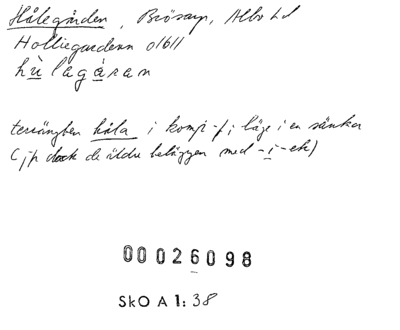 Hålegården, Brösarp, Albo hd
Holliegardenn 01611
hùlagáran
terrängbet håla i komp -f; läge i en sänka
(jfr dock de äldre beläggen med -i- etc)
00026098
SkO A 1: 38